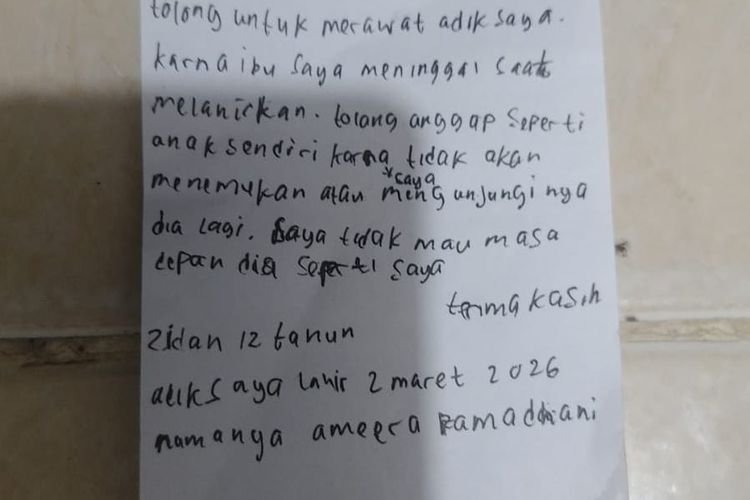 tolong untuk merawat adik saya.
karna ibu saya meninggal saat
melanirkan. tolong anggap seperti
anak sendiri karna tidak akan
menemukan atau saya mengunjungi nya
dia lagi. saya tidak mau masa
depan dia seperti saya
terima kasih
Zidan 12 tahun
adik saya lahir 2 maret 2026
namanya ameera ramadhani